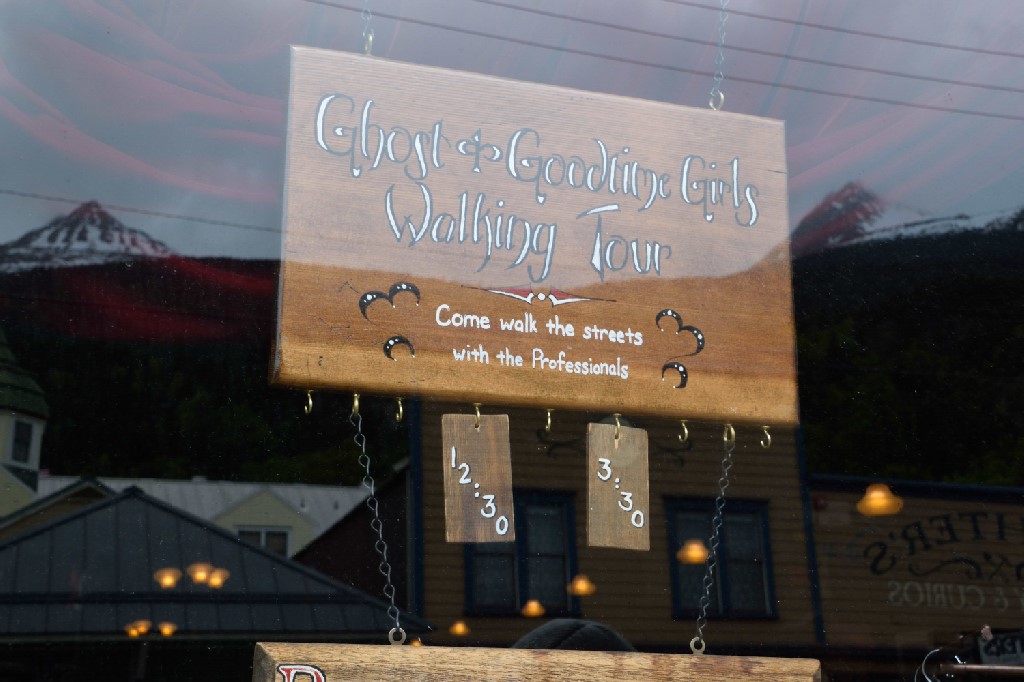 Ghost & Goodtime Girls
Walking Tour
Come walk the streets
with the Professionals
12:30
3:30
& CURIOS